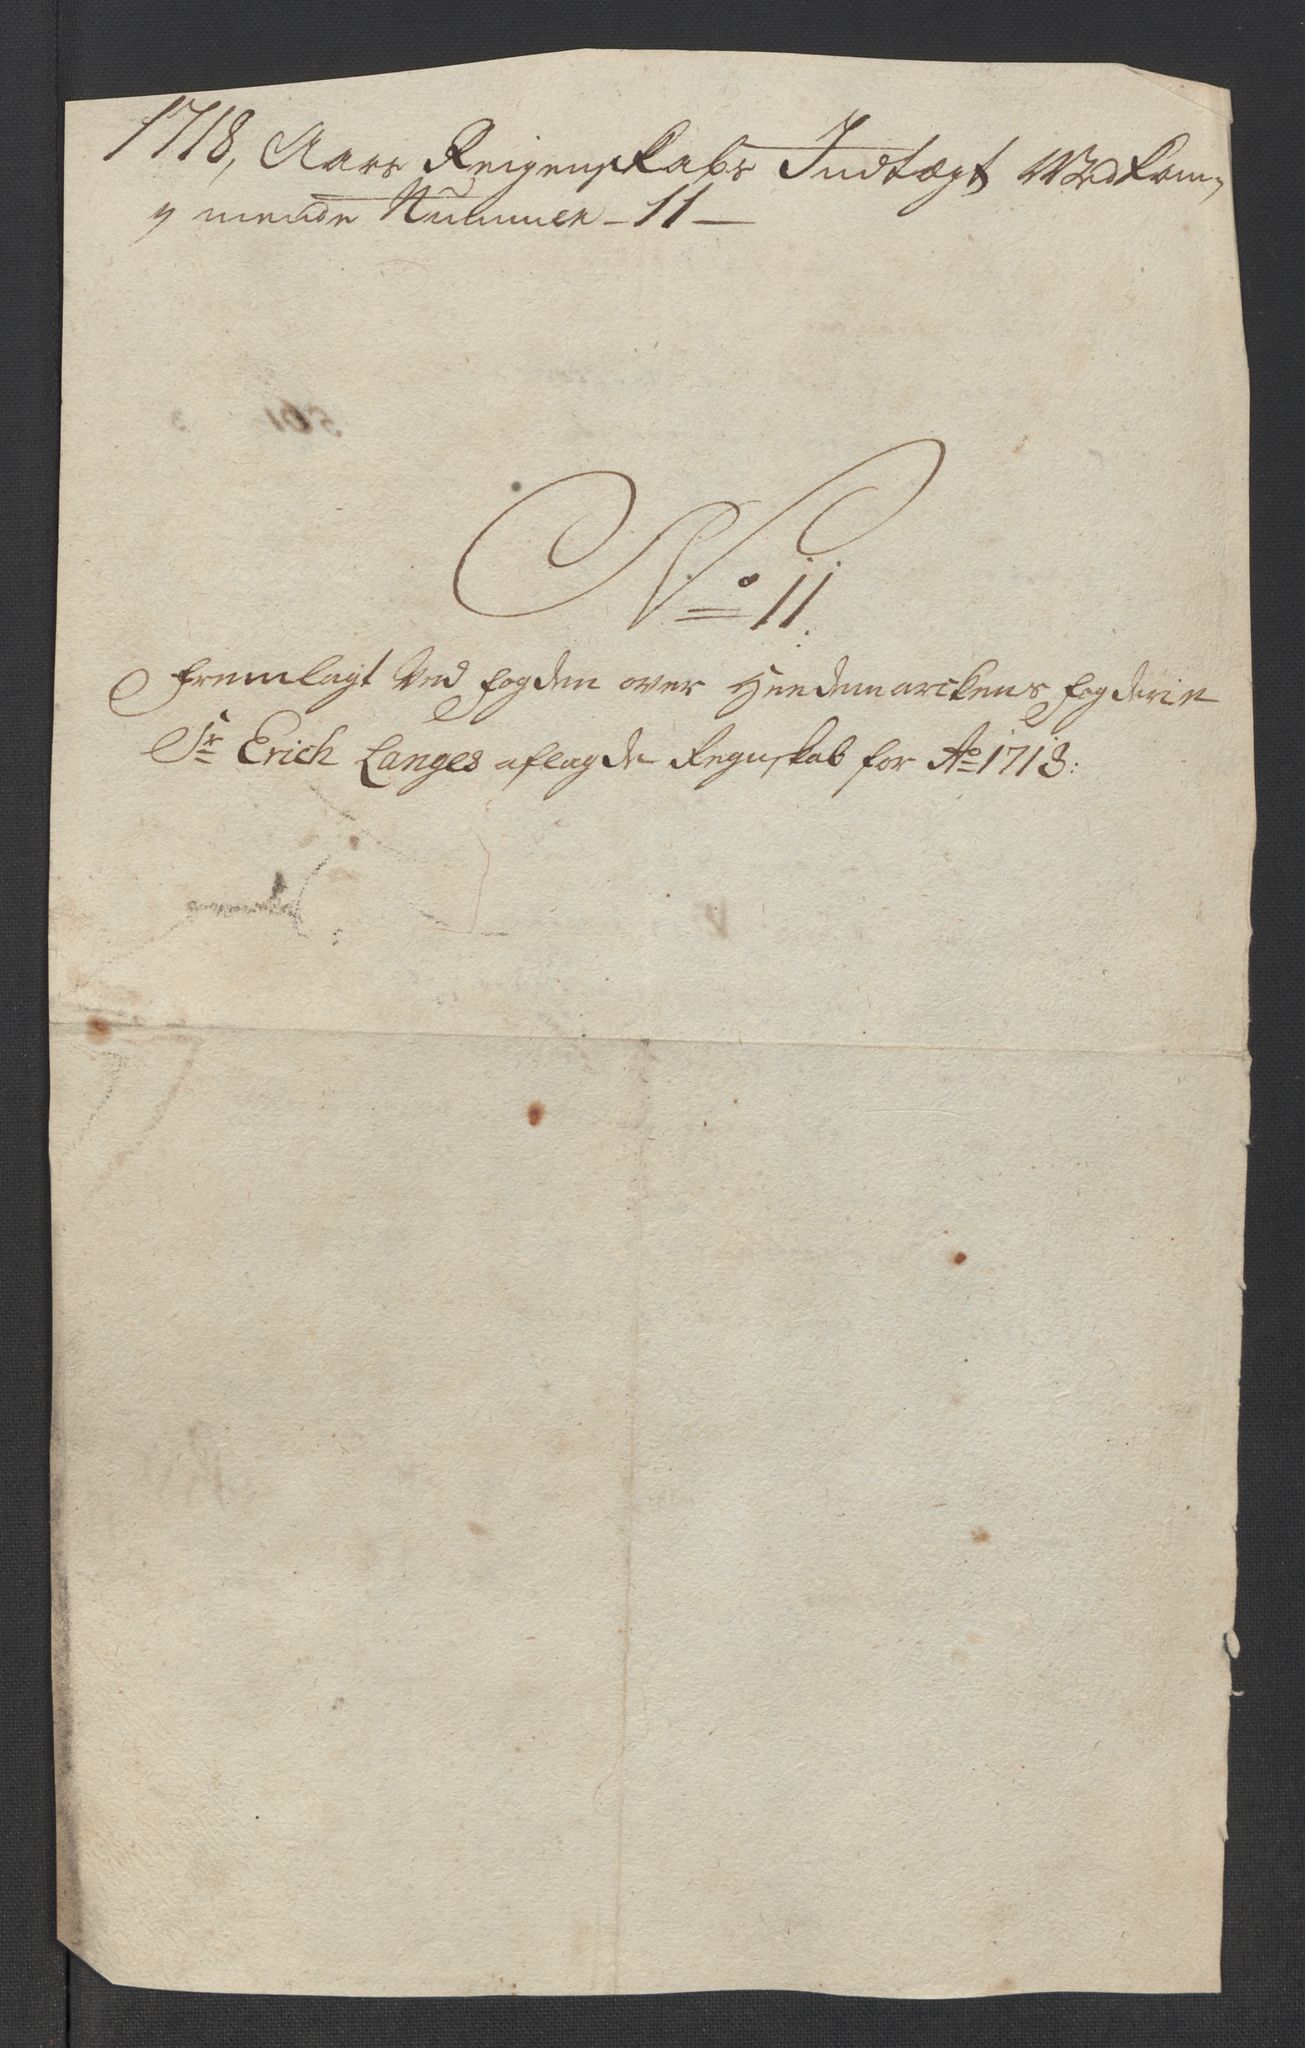 1718, Aars Reigenskabs Indtægt Vedkom,
mende Nummer - 11 -
No 11
fremlagt ved fogden over Heedemarckens fogderie
Sr Erich Langes aflagde Regnskab for Ao 1718: